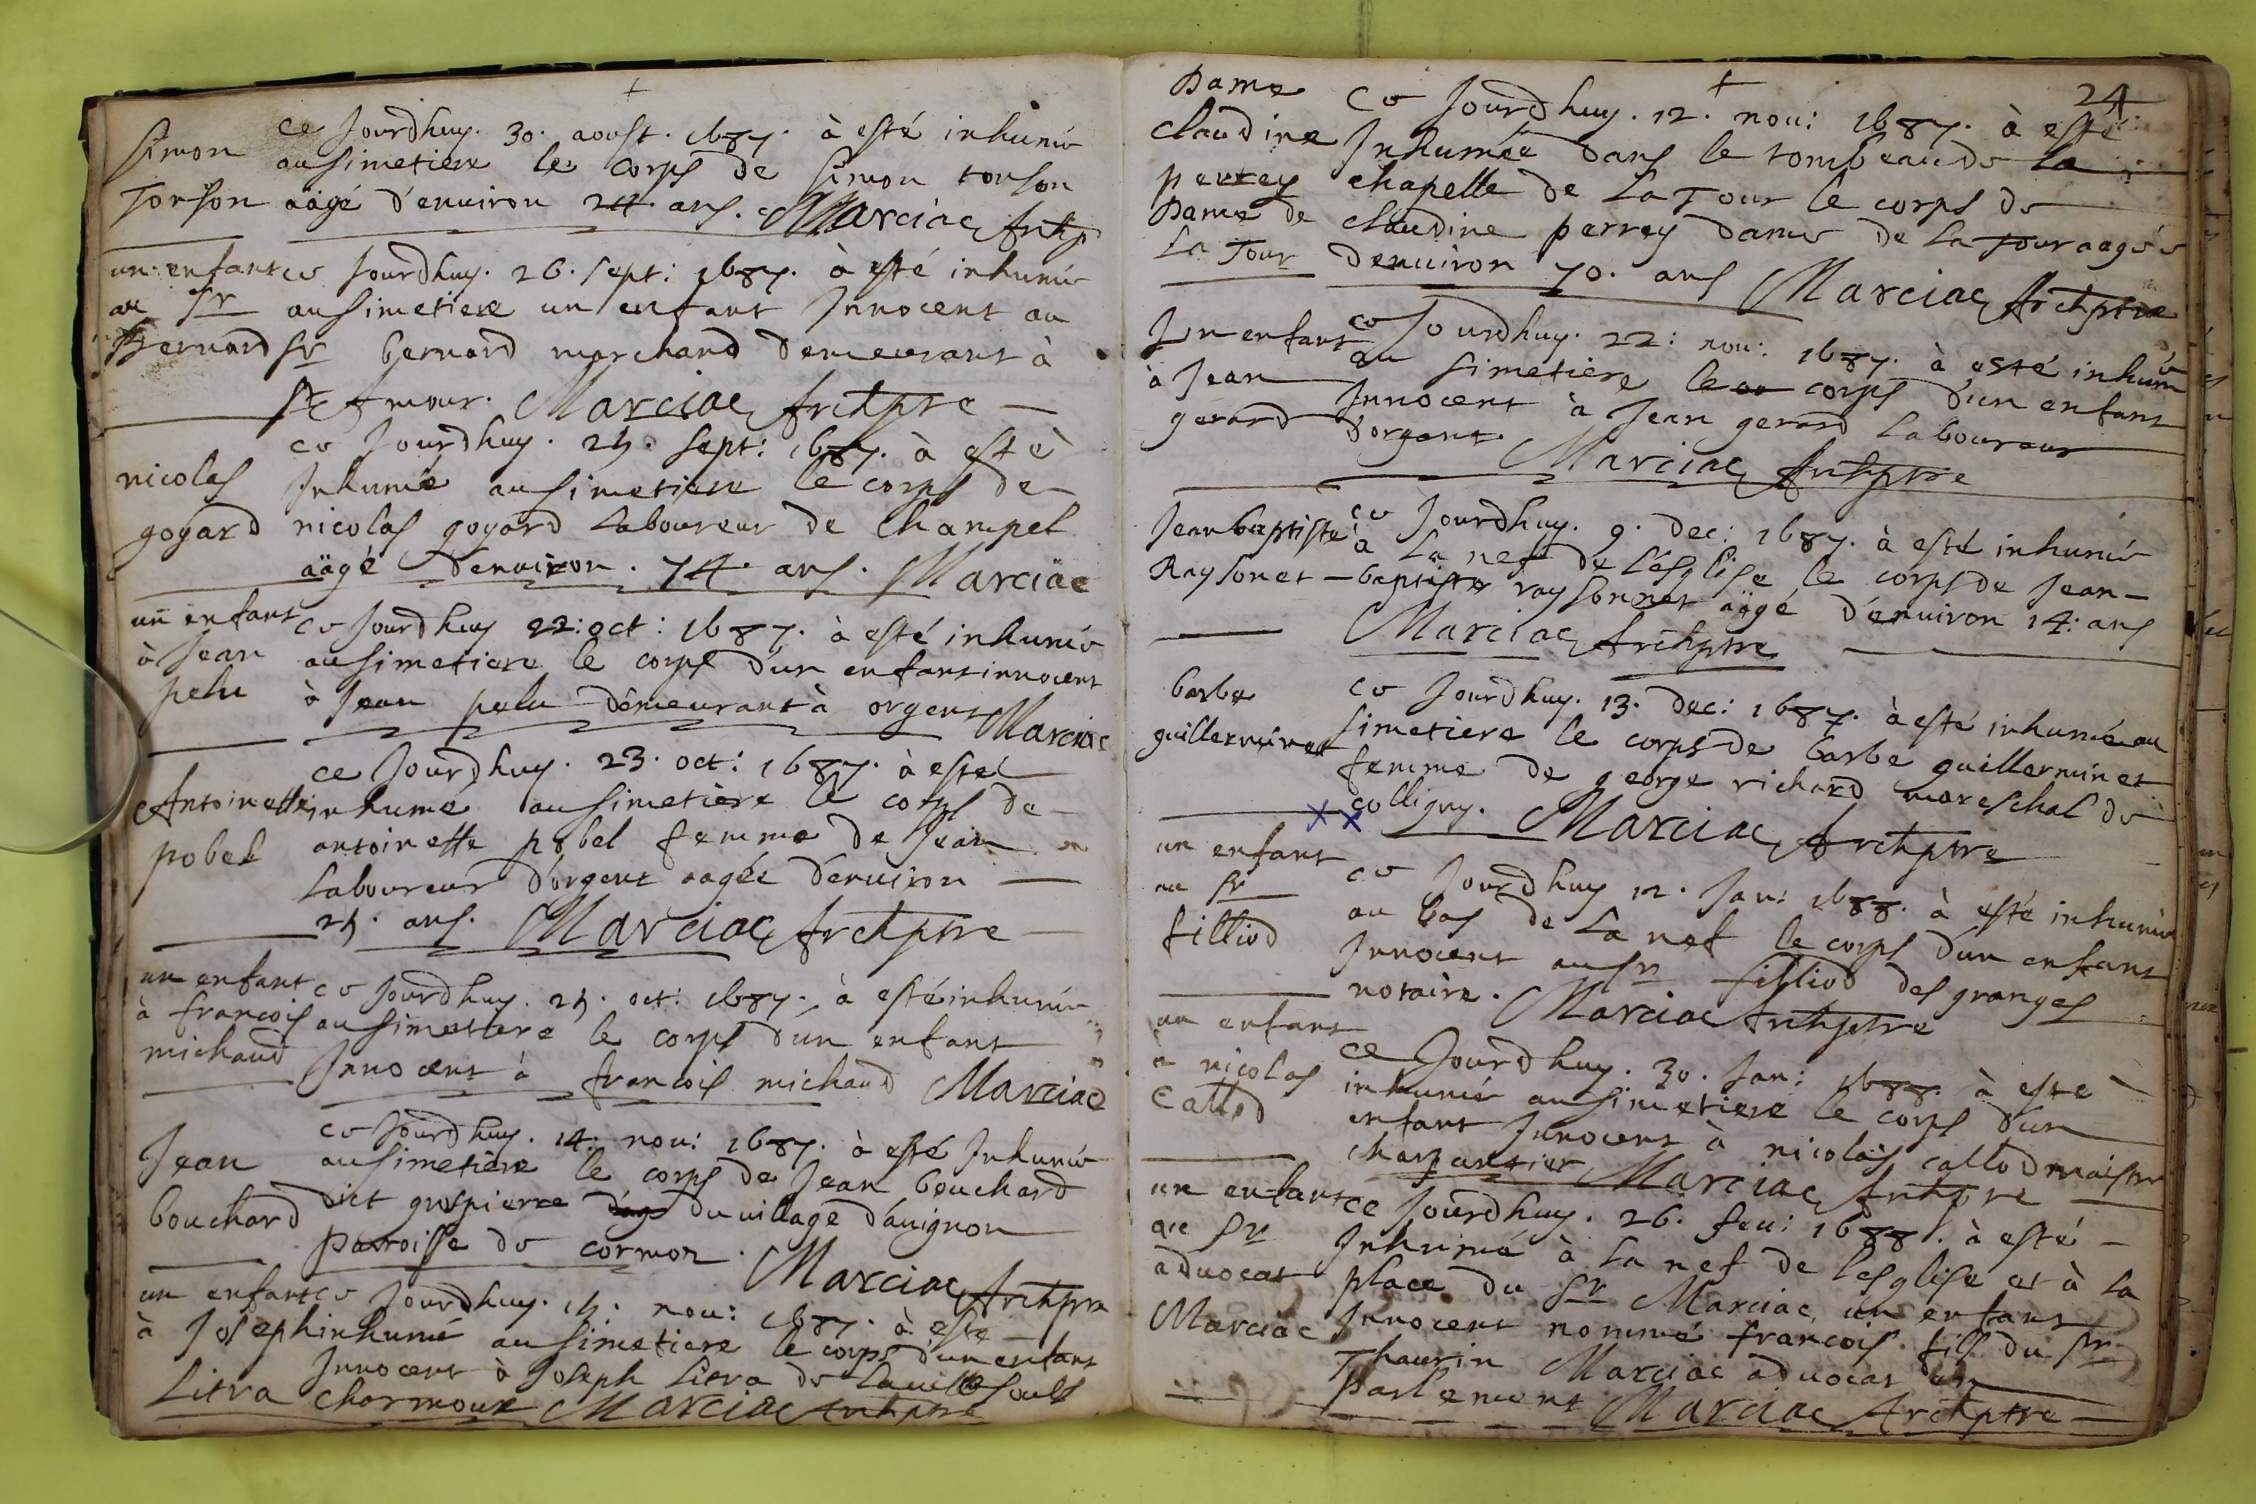 Simon
Torson
ce Jourdhuy. 30. aoust. 1687. à esté inhumé
au Simetiere le corps de Simon torson
aâgé d'enuiron 24. ans. Marciac Archp
un enfant
au Sr
Bernard
ce Jourdhuy. 26. Sept: 1687. à esté inhumé
au Simetiere un enfant Innocent au
Sr bernard marchand demeurant à
St Amour. Marciac Archptre
nicolas
goyard
ce Jourdhuy. 29. Sept: 1687. à esté
Inhumé au Simetiere le corps de
nicolas goyard laboureur de Champel
aâgé denuiron. 74. ans. Marciac
un enfant
à Jean
pelu
ce Jourdhuy 22: oct: 1687. à esté inhumé
au Simetiere le corps d'un enfant innocent
à Jean pelu demeurant à orgent Marciac
Antoinette
pobel
ce Jourdhuy. 23. oct: 1687. à esté
inhumé au Simetière le corps de
antoinette pobel femme de Jean
laboureur d'orgent aagée d'enuiron
29. ans. Marciac Archptre
un enfant
à francois
michaud
ce Jourdhuy. 29. oct: 1687. à esté inhumé
au Simetiere le corps d'un enfant
Innocent à francois michaud Marciac
Jean
bouchard
ce Jourdhuy. 14. nou: 1687. à esté Inhumé
au Simetière le corps de Jean bouchard
dict grospierre du village d'auignon
paroisse de cormoz. Marciac Archptre
un enfant
à Joseph
Litra
ce Jourdhuy. 19. nou: 1687. à esté
inhumé au Simetiere le corps d'un enfant
Innocent à Joseph Litra de
charmoux Marciac Archptre
24
Dame
claudine
perrey
Dame de
La Tour
Ce Jourdhuy. 12. nou: 1687. à esté
Inhumée dans le tombeau de la
chapelle de La Tour le corps de
claudine perrey dame de La Tour aagée
denuiron 70. ans Marciac Archptre
Un enfant
à Jean
gerard
ce Jourdhuy. 22: nou: 1687. à esté inhumé
au Simetiere le corps d'un enfant
Innocent à Jean gerard laboureur
d'orgent. Marciac Archptre
Jean baptiste
Raysonet
ce Jourdhuy. 9. dec: 1687. à esté inhumé
à la nef de l'esglise le corps de Jean-
baptiste raysonnet aâgé d'enuiron 14: ans
Marciac Archptre
barbe
guillerminet
ce Jourdhuy. 13. dec: 1687. à esté inhumé au
Simetiere le corps de barbe guillerminet
femme de george richard mareschal de
colligny. Marciac Archptre
un enfant
au Sr
filliod
ce Jourdhuy 12. Jan: 1688. à esté inhumé
au bas de la nef le corps d'un enfant
Innocent au Sr filliod des granges
notaire. Marciac Archptre
un enfant
à nicolas
Callod
ce Jourdhuy. 30. Jan: 1688. à esté
inhumé au Simetiere le corps d'un
enfant Innocent à nicolas callod maistre
charpantier Marciac Archptre
un enfant
au Sr
aduocat
Marciac
ce Jourdhuy. 26. feu: 1688. à esté
Inhumé à la nef de l'esglise et à la
place du Sr Marciac, un enfant
Innocent nommé francois fils du Sr
Thaurin Marciac aduocat en
parlement Marciac Archptre